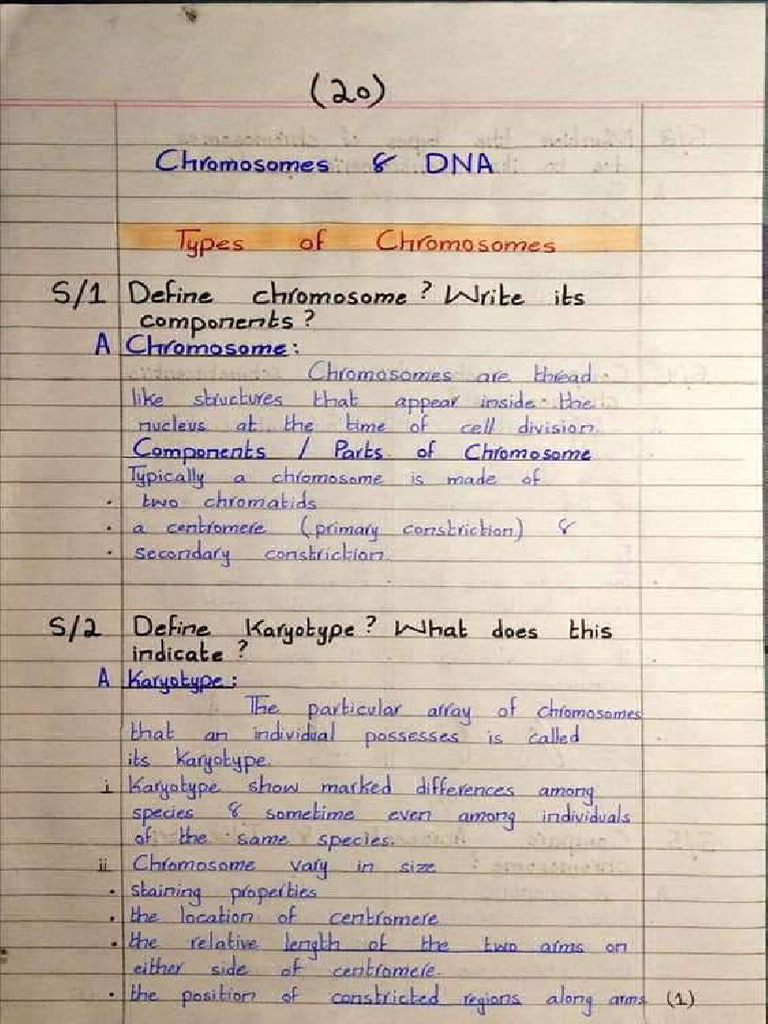 (20)
Chromosomes & DNA
Types of Chromosomes
S/1 Define chromosome? Write its
components?
A Chromosome:
Chromosomes are thread
like structures that appear inside the
nucleus at the time of cell division.
Components / Parts of Chromosome
Typically a chromosome is made of
· two chromatids
· a centromere (primary constriction) &
· secondary constriction
S/2 Define Karyotype? What does this
indicate?
A Karyotype:
The particular array of chromosomes
that an individual possesses is called
its Karyotype.
i Karyotype show marked differences among
species & sometime even among individuals
of the same species.
ii Chromosome vary in size
· staining properties
· the location of centromere
· the relative length of the two arms on
either side of centromere.
· the position of constricted regions along arms (1)